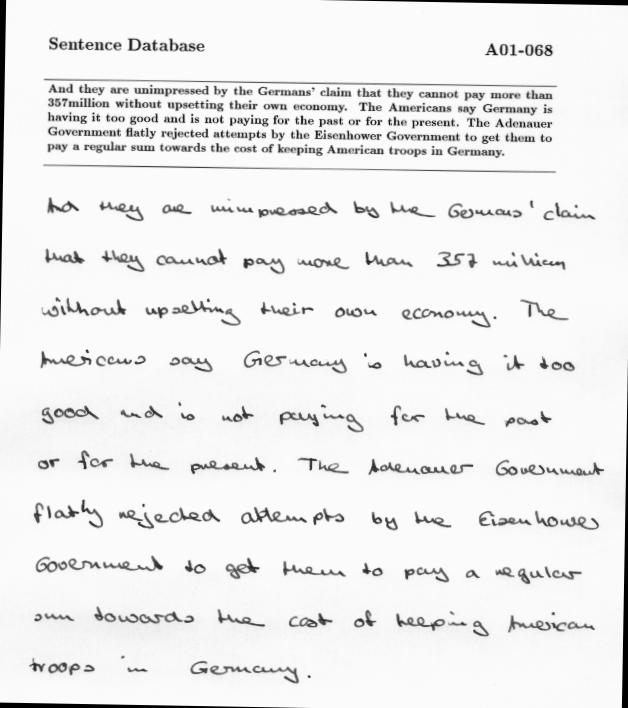 Sentence Database
A01-068
And they are unimpressed by the Germans' claim that they cannot pay more than
357million without upsetting their own economy. The Americans say Germany is
having it too good and is not paying for the past or for the present. The Adenauer
Government flatly rejected attempts by the Eisenhower Government to get them to
pay a regular sum towards the cost of keeping American troops in Germany.
And they are unimpressed by the Germans' claim
that they cannot pay more than 357 million
without upsetting their own economy. The
Americans say Germany is having it too
good and is not paying for the past
or for the present. The Adenauer Government
flatly rejected attempts by the Eisenhower
Government to get them to pay a regular
sum towards the cost of keeping American
troops in Germany.